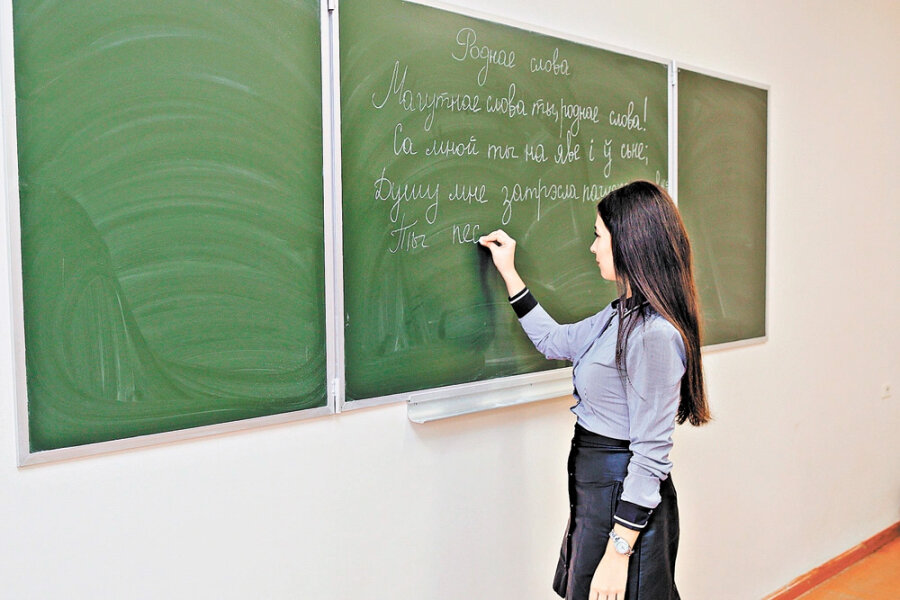 Роднае слова
Магутнае слова ты, роднае слова!
Са мной ты на яве і ў сьне;
Душу мне затрэсла
Ты пес